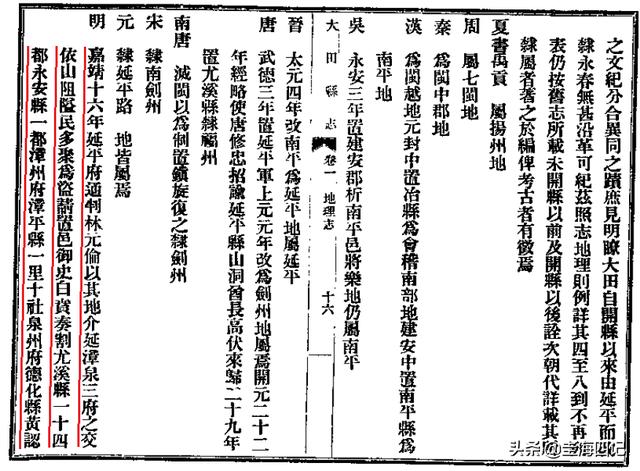 之文紀分合異同之蹟庶見明瞭大田自開縣以來由延平而
隸永春無甚沿革可紀茲照志地理則例詳其四至八到不再
表仍按舊志所載未開縣以前及開縣以後詮次朝代詳載其
隸屬者著之於編俾考古者有徵焉
夏書禹貢 屬揚州地
周 屬七閩地
秦 爲閩中郡地
漢 爲閩越地元封中置冶縣爲會稽南部地建安中置南平縣爲
南平地
大田縣志 卷一 地理志 十六
吳 永安三年置建安郡析南平邑將樂地仍屬南平
晉 太元四年改南平爲延平地屬延平
唐 武德三年置延平軍上元元年改爲劍州地屬焉開元二十二
年經略使唐修忠招諭延平縣山洞酋長高伏來歸二十九年
置尤溪縣隸福州
南唐 滅閩以爲制置鎮旋復之隸劍州
宋 隸南劍州
元 隸延平路 地皆屬焉
明 嘉靖十六年延平府通判林元倫以其地介延漳泉三府之交
依山阻隘民多聚爲盜請置邑御史白賁奏割尤溪縣一十四
都永安縣一都漳州府漳平縣一里十社泉州府德化縣黃認
头条@圭海四记